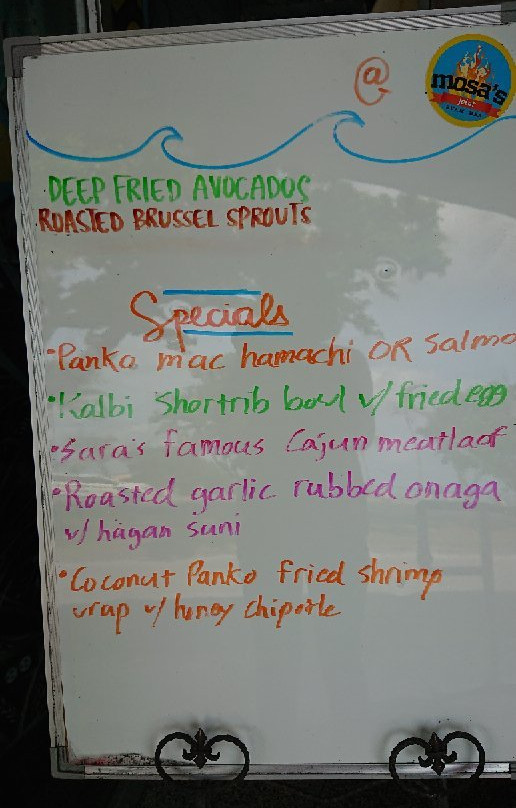 @
mosa's
joint
DEEP FRIED AVOCADOS
ROASTED BRUSSEL SPROUTS
Specials
•Panko mac hamachi OR Salmo
•Kalbi Shortrib bowl w/ fried egg
•Sara's famous Cajun meatloaf
•Roasted garlic rubbed onaga
w/ hagan suni
•Coconut Panko fried shrimp
wrap w/ honey chipotle